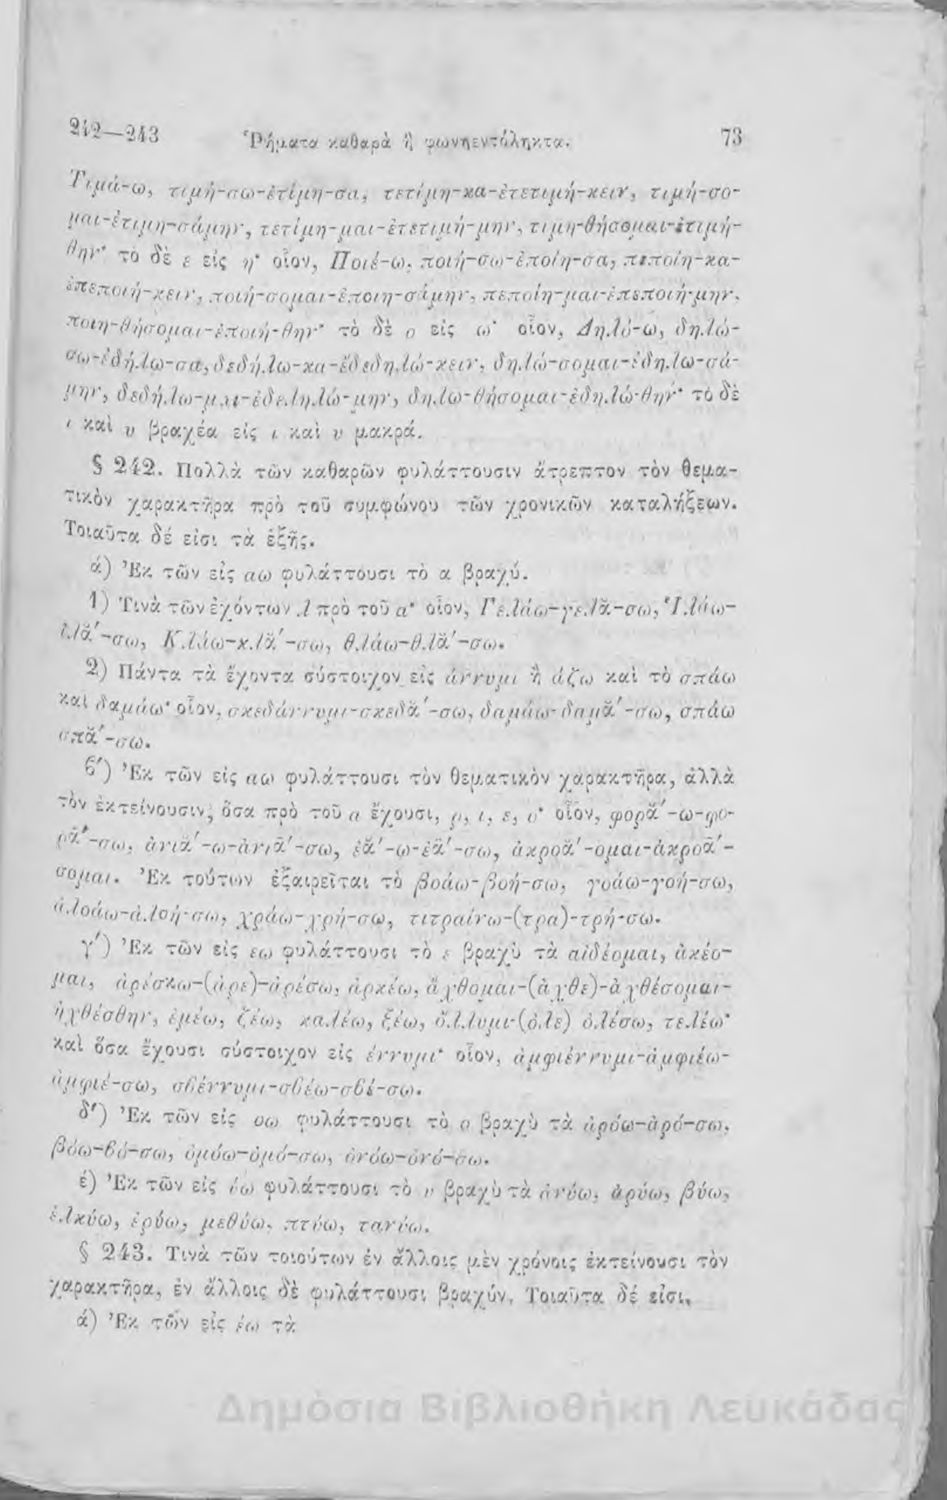 242—243 Ῥήματα καθαρὰ ἢ φωνηεντόληκτα. 73
Τιμά-ω, τιμή-σω-ἐτίμη-σα, τετίμη-κα-ἐτετιμή-κειν, τιμή-σο-
μαι-ἐτιμη-σάμην, τετίμη-μαι-ἐτετιμή-μην, τιμη-θήσομαι-ἐτιμή-
θην· τὸ δὲ ε εἰς η· οἷον, Ποιέ-ω, ποιή-σω-ἐποίη-σα, πεποίη-κα-
ἐπεποιή-κειν, ποιή-σομαι-ἐποιη-σάμην, πεποίη-μαι-ἐπεποιή-μην,
ποιη-θήσομαι-ἐποιή-θην· τὸ δὲ ο εἰς ω· οἷον, Δηλό-ω, δηλώ-
σω-ἐδήλω-σα, δεδήλω-κα-ἐδεδηλώ-κειν, δηλώ-σομαι-ἐδηλω-σά-
μην, δεδήλω-μαι-ἐδεδηλώ-μην, δηλω-θήσομαι-ἐδηλώ-θην· τὸ δὲ
ι καὶ υ βραχέα εἰς ι καὶ υ μακρά.
§ 242. Πολλὰ τῶν καθαρῶν φυλάττουσιν ἄτρεπτον τὸν θεμα-
τικὸν χαρακτῆρα πρὸ τοῦ συμφώνου τῶν χρονικῶν καταλήξεων.
Τοιαῦτα δέ εἰσι τὰ ἑξῆς.
ά) Ἐκ τῶν εἰς αω φυλάττουσι τὸ α βραχύ.
1) Τινὰ τῶν ἐχόντων λ πρὸ τοῦ α· οἷον, Γελάω-γελᾰ-σω, Ἱλάω-
ἱλᾰ΄-σω, Κλάω-κλᾰ΄-σω, θλάω-θλᾰ΄-σω.
2) Πάντα τὰ ἔχοντα σύστοιχον εἰς άννυμι ἢ άζω καὶ τὸ σπάω
καὶ δαμάω· οἷον, σκεδάννυμι-σκεδᾰ΄-σω, δαμάω-δαμᾰ΄-σω, σπάω
σπᾰ΄-σω.
β΄) Ἐκ τῶν εἰς αω φυλάττουσι τὸν θεματικὸν χαρακτῆρα, ἀλλὰ
τὸν ἐκτείνουσιν, ὅσα πρὸ τοῦ α ἔχουσι, ρ, ι, ε, ο· οἷον, φορᾰ΄-ω-φο-
ρᾱ΄-σω, ἀνιᾰ΄-ω-ἀνιᾱ΄-σω, ἐᾰ΄-ω-ἐᾱ΄-σω, ἀκροᾰ΄-ομαι-ἀκροᾱ΄-
σομαι. Ἐκ τούτων ἐξαιρεῖται τὸ βοάω-βοή-σω, γοάω-γοή-σω,
ἀλοάω-ἀλοή-σω, χράω-χρή-σω, τιτραίνω-(τρα)-τρή-σω.
γ΄) Ἐκ τῶν εἰς εω φυλάττουσι τὸ ε βραχὺ τὰ αἰδέομαι, ἀκέο-
μαι, ἀρέσκω-(ἀρε)-ἀρέσω, ἀρκέω, ἄχθομαι-(ἀχθε)-ἀχθέσομαι-
ἠχθέσθην, ἐμέω, ζέω, καλέω, ξέω, ὄλλυμι-(ὀλε) ὀλέσω, τελέω·
καὶ ὅσα ἔχουσι σύστοιχον εἰς έννυμι· οἷον, ἀμφιέννυμι-ἀμφιέω-
ἀμφιέ-σω, σβέννυμι-σβέω-σβέ-σω.
δ΄) Ἐκ τῶν εἰς οω φυλάττουσι τὸ ο βραχὺ τὰ ἀρόω-ἀρό-σω,
βόω-βό-σω, ὀμόω-ὀμό-σω, ὀνόω-ὀνό-σω.
έ) Ἐκ τῶν εἰς ύω φυλάττουσι τὸ υ βραχὺ τὰ ἀνύω, ἀρύω, βύω,
ἑλκύω, ἐρύω, μεθύω, πτύω, τανύω.
§ 243. Τινὰ τῶν τοιούτων ἐν ἄλλοις μὲν χρόνοις ἐκτείνουσι τὸν
χαρακτῆρα, ἐν ἄλλοις δὲ φυλάττουσι βραχύν. Τοιαῦτα δέ εἰσι,
ά) Ἐκ τῶν εἰς έω τὰ
Δημόσια Βιβλιοθήκη Λευκάδας